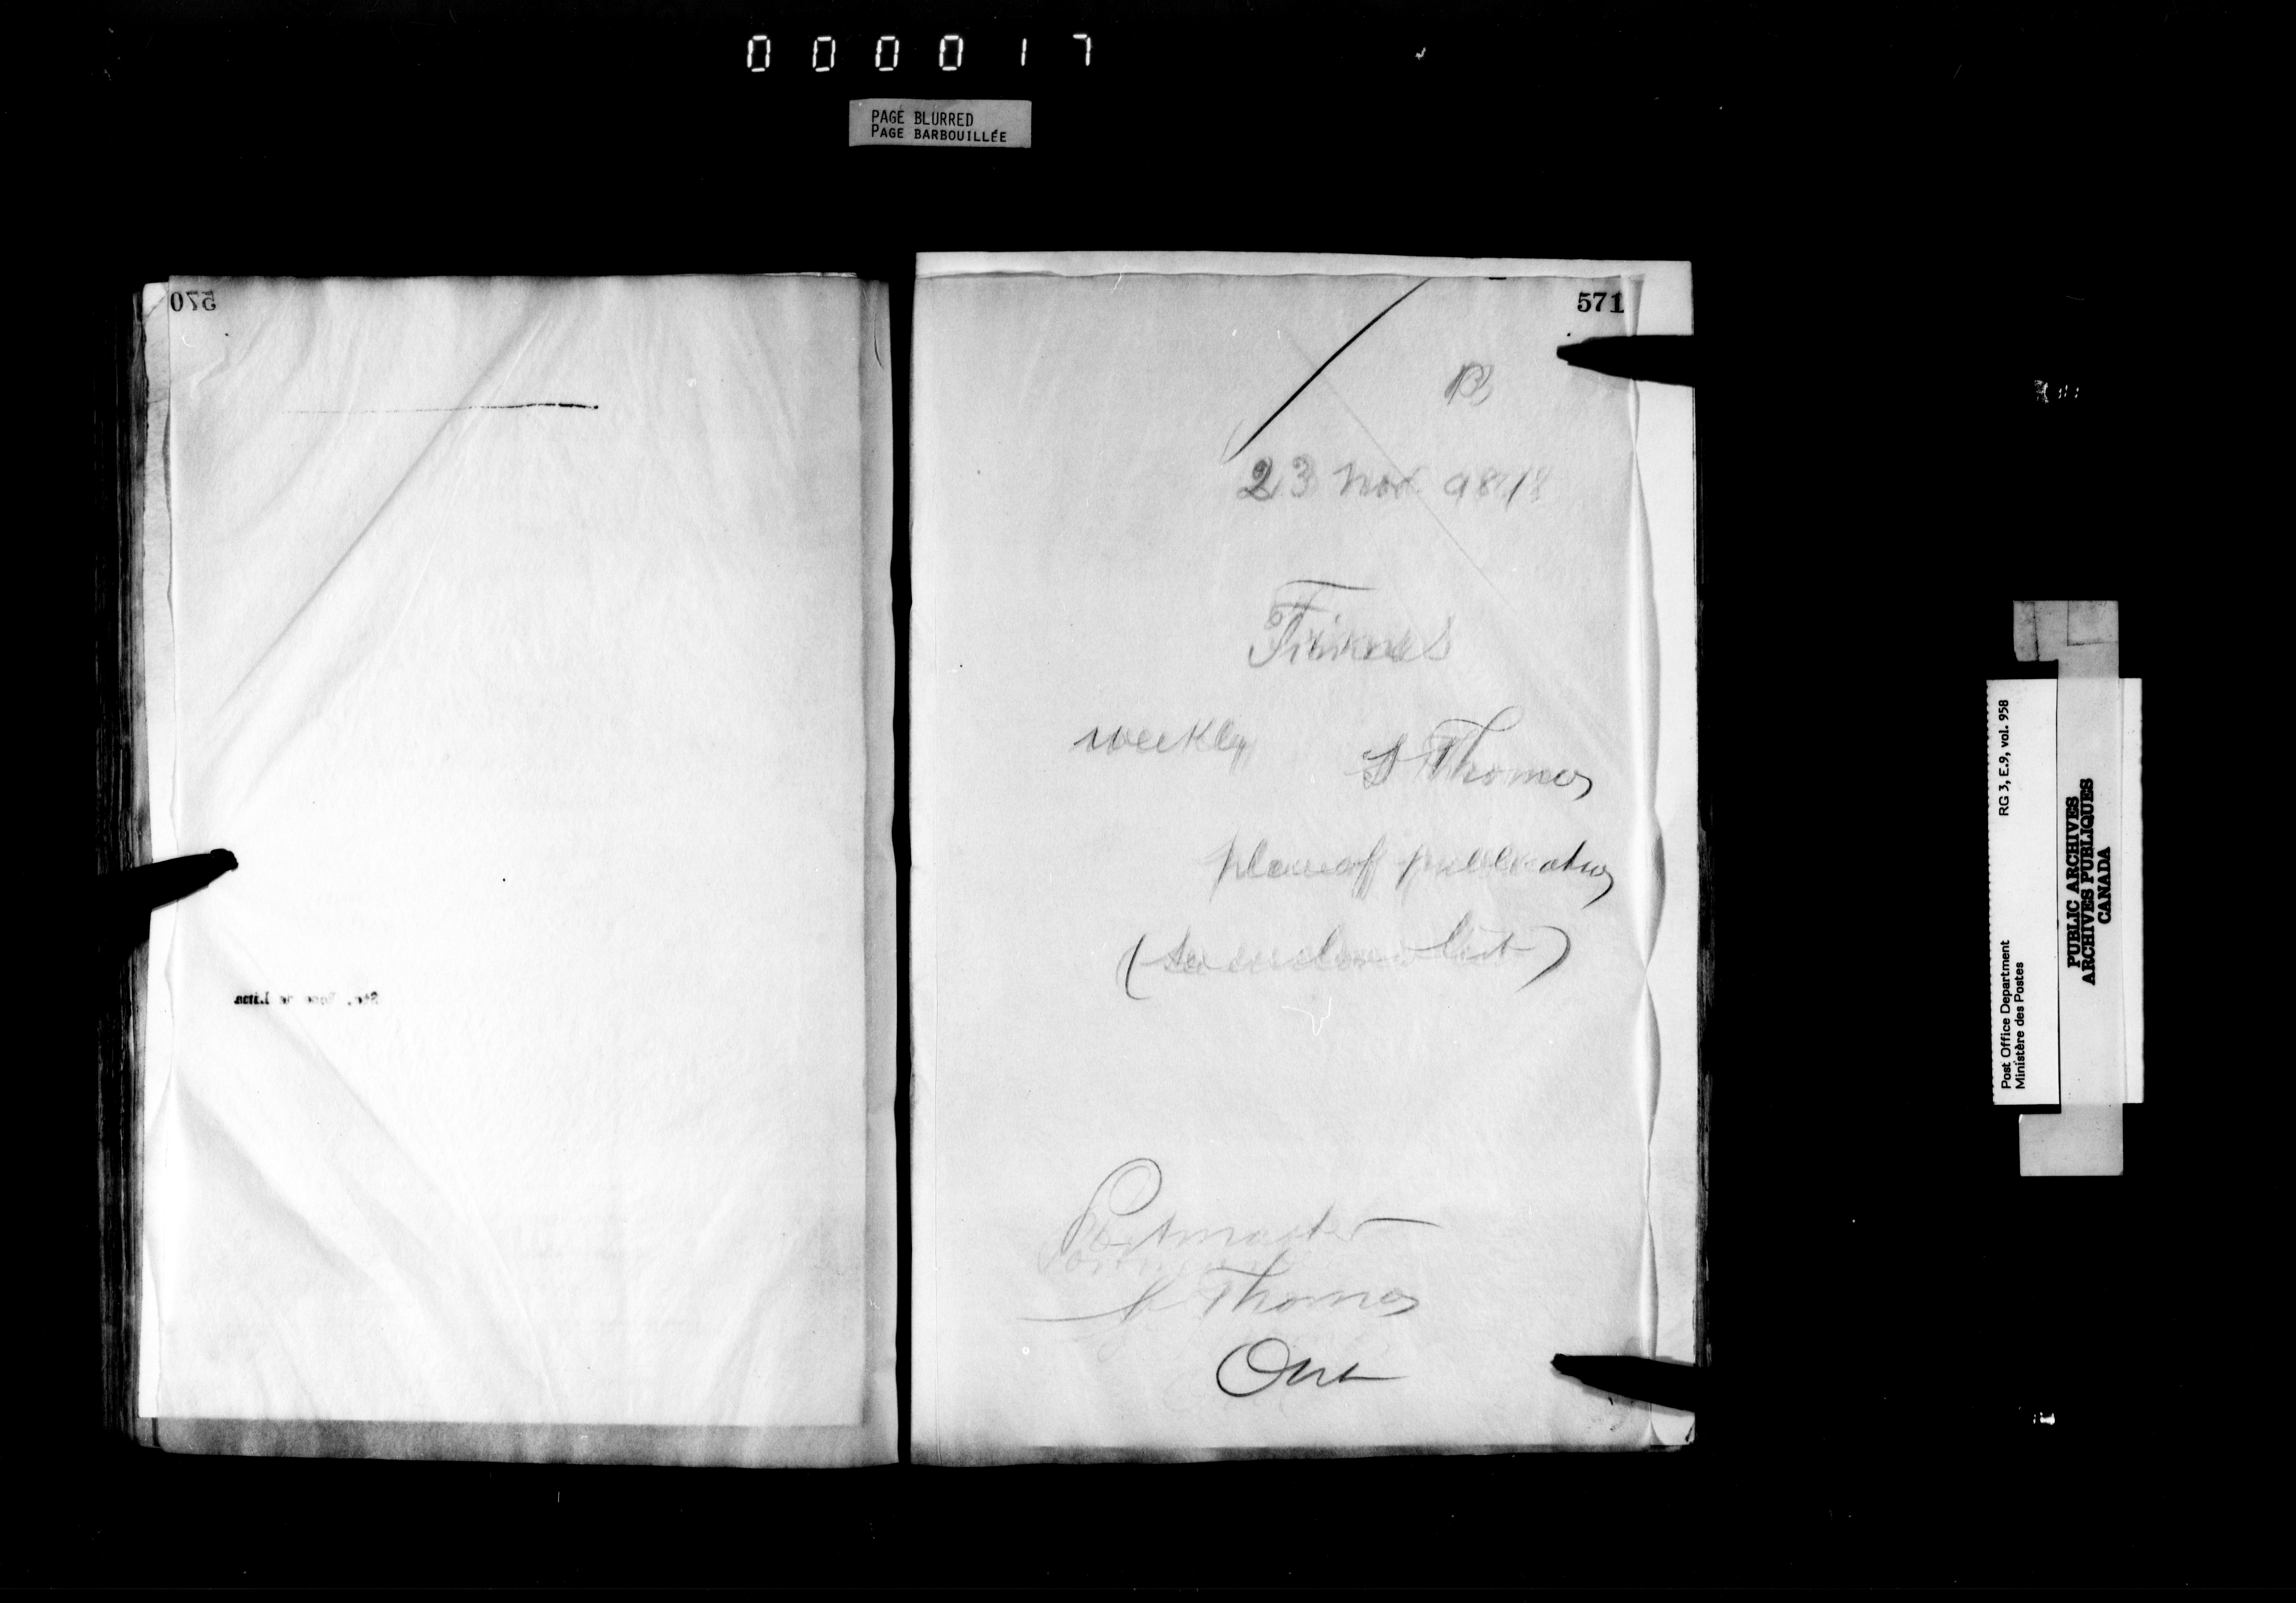 000017
PAGE BLURRED
PAGE BARBOUILLÉE
570
Ste. Rose de Lima
571
B
23 Nov. 98
Times
weekly
St Thomas
place of publication
(see enclosed list)
Postmaster
St Thomas
Ont
Post Office Department RG 3, E.9, vol. 958
Ministère des Postes
PUBLIC ARCHIVES
ARCHIVES PUBLIQUES
CANADA